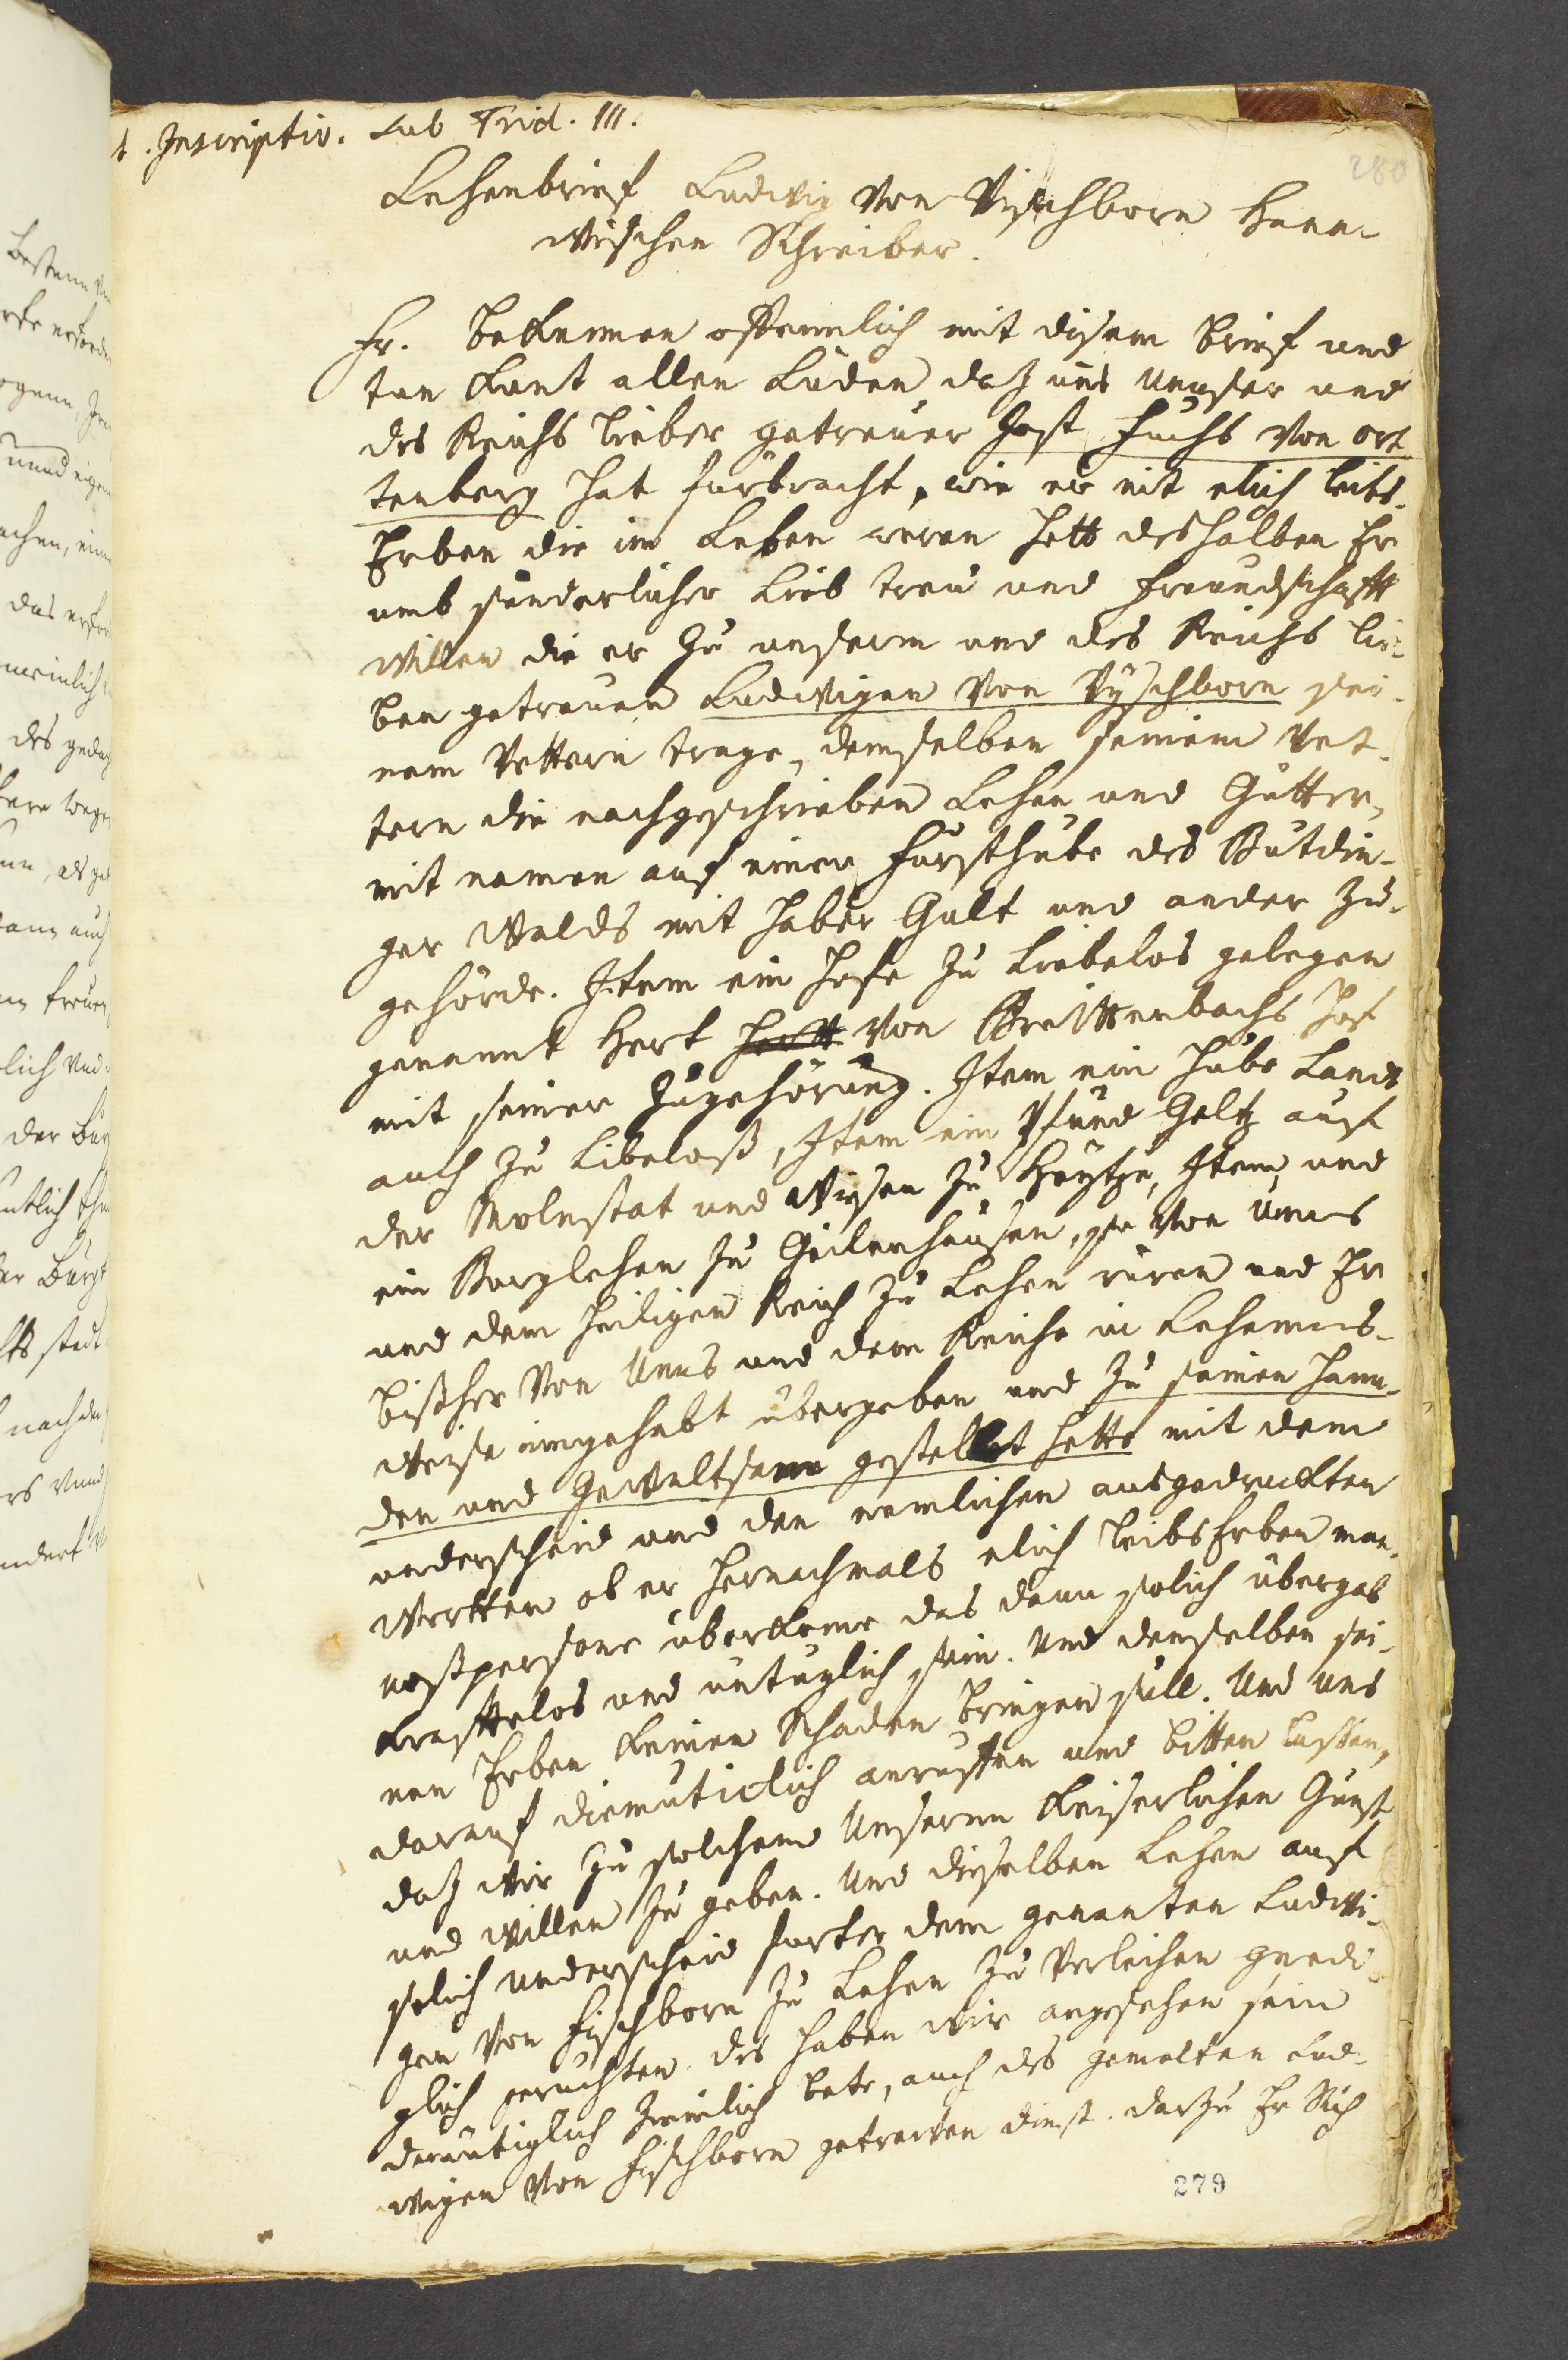 1. Inscriptio. sub Frid. III.
280
Lehenbrief Ludwig von Vischborn Hann-
wischen Schreiber.
Fr. Bekennen offennlich mit disem brief und
tun kunt allen Luden daz uns unnser und
des Reichs lieber getreuer Jost Fuchs von Ort
tenberg hat furbracht, wie er nit elich leibs-
Erben die im Leben weren hett deshalben Er
umb sunderlicher Lieb treu und freundschafft
willen die er zu unserm und des Reichs lie-
ben getreuen Ludwigen von Vyschborn sei-
nem Vettern trage, demselben seinem Vet-
tern die nachgeschrieben Lehen und Gutter,
mit namen auf einer Fursthube des Butdin-
ger Walds mit haber Gult und ander Zu-
gehörde. Item ein Hofe zu Liebelos gelegen
genannt Hert von Breittenbachs Hof
mit seiner Zugehörung. Item ein Hube Lands
auch zu Libeloß, Item ein Pfund Geltz auf
der Molnstat und Wysen zu Heytze, Item und
ein Burglehen zu Geilenhausen, so von unns
und dem heiligen Reich zu Lehen ruren und Er
bißher von Unns und dem Reiche in Lehenns-
weise inngehabt übergeben und zu seinen Hann-
den und Gewaltsam gestellet hette mit dem
underscheid und den nemlichen ausgedruckten
Wortten ob er hernachmals elich leibs Erben man-
nesspersone überkome das dann solich übergab
krafftelos und untuglich sein. Und denselben sei-
nen Erben keinen Schaden bringen sull. Und uns
darauf diemuticlich anruffen und bitten lassen,
daz wir zu solchem Unserm keiserlichen Gunst
und willen zu geben. Und dieselben Lehen auf
solich underscheid furter dem genanten Ludwi-
gen von Fischborn zu Lehen zu verleihen gnedi-
glich geruchten des haben wir angesehen sein
demütiglich zimlich bete, auch des gemelten Lud-
wigen von Fischborn getrewen dinst. darzu Er Sich
279